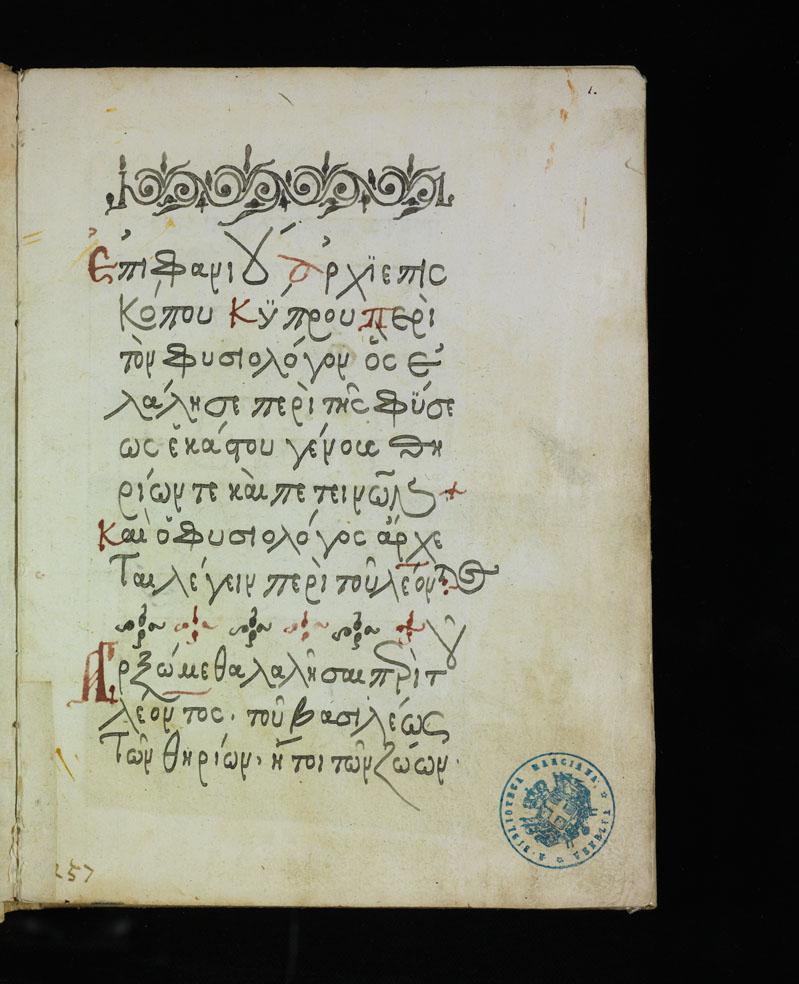 1.
Ἐπιφανίου ἀρχϊεπισ
κόπου Κϋπρου περὶ
τὸν φυσιολόγον ὃς ἐ
λάλησε περὶ τῆς φϋσε
ως ἑκάστου γένους θη
ρίων τε καὶ πετεινῶν +
Καὶ ὁ φυσιολόγος ἄρχε
ται λέγειν περὶ τοῦ λέοντος
Ἀρξώμεθα λαλῆσαι περὶ τοῦ
λέοντος. τοῦ βασιλέως
τῶν θηρίων, ἤτοι τῶν ζώων.
R. BIBLIOTECA MARCIANA. VENEZIA
257